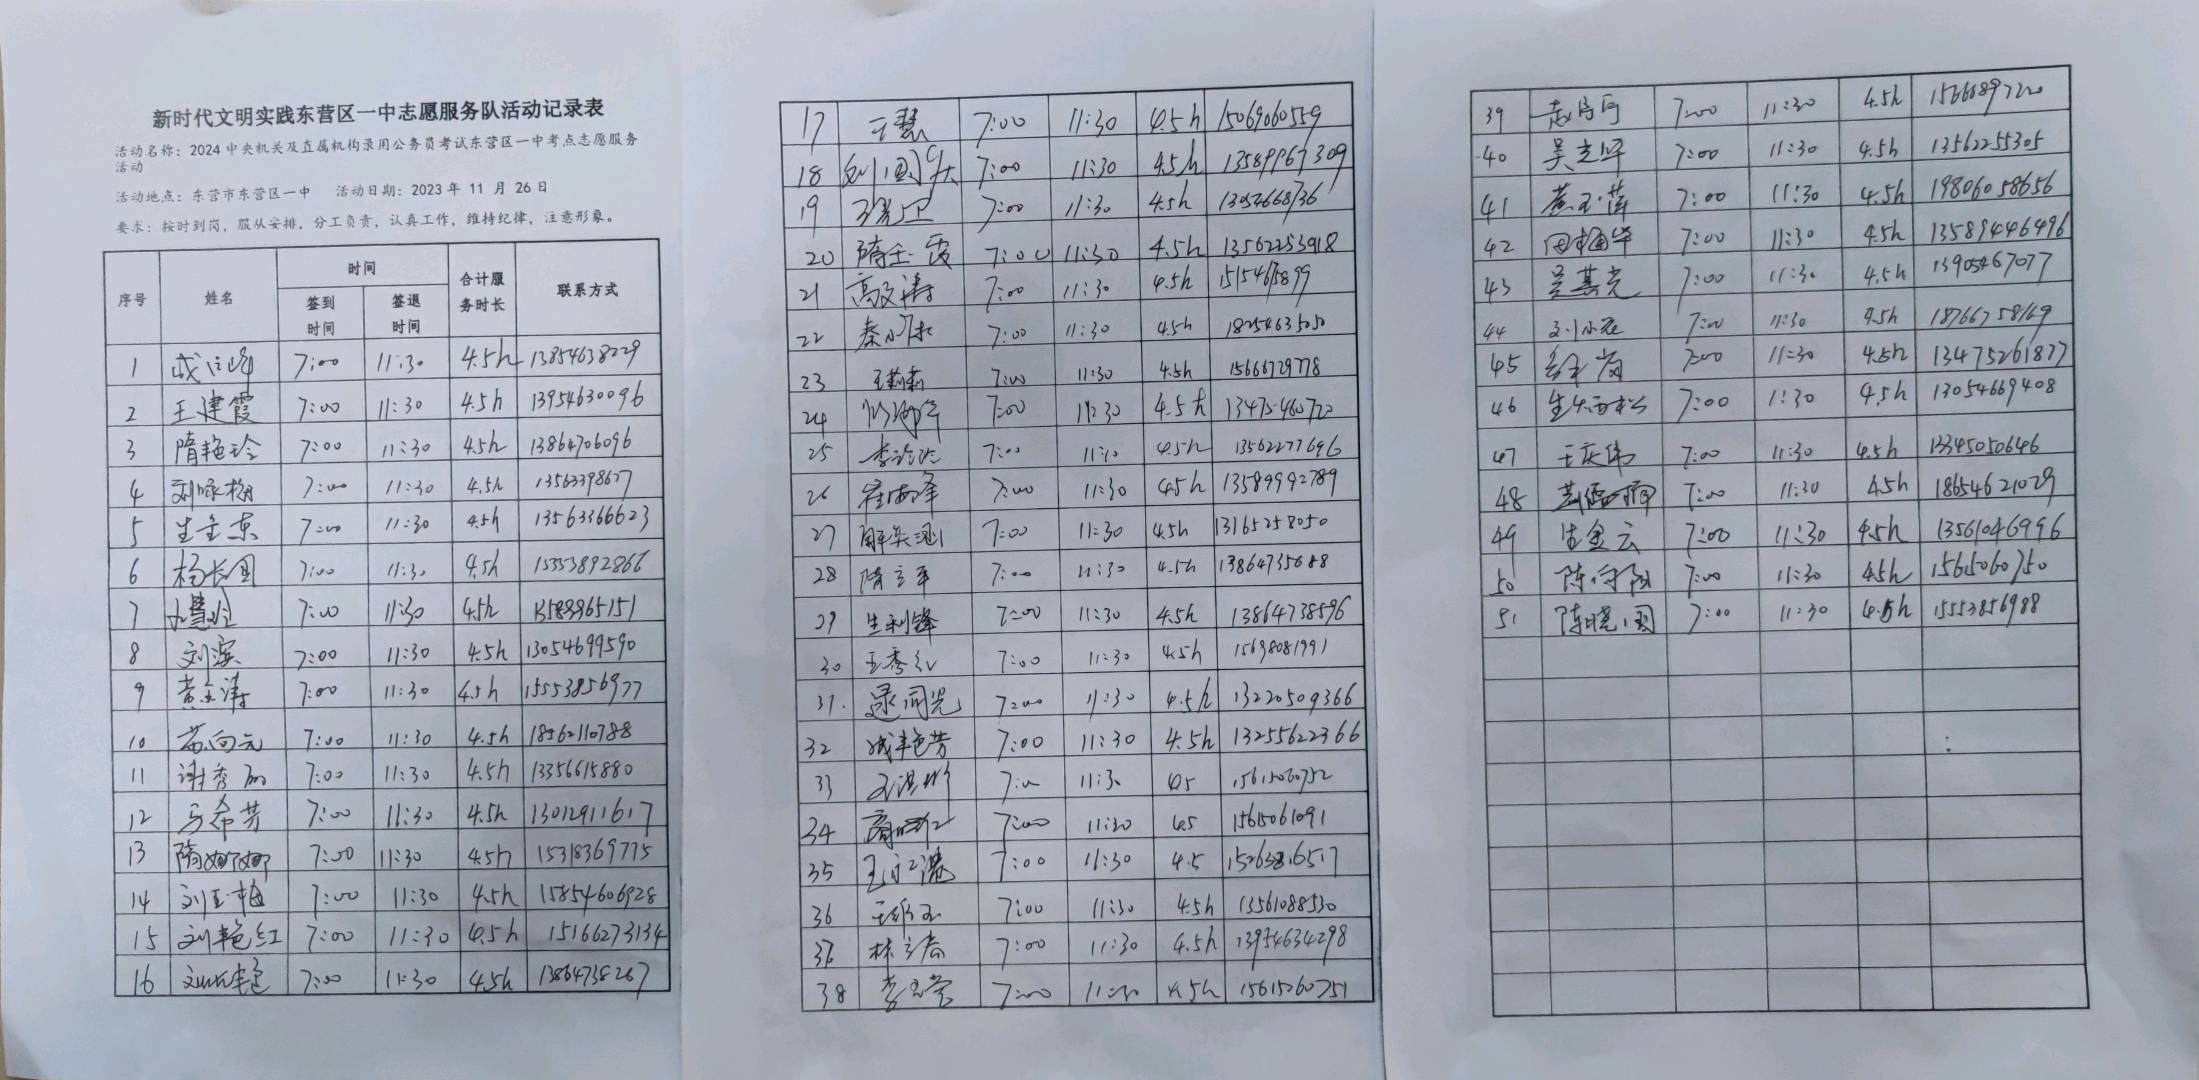 新时代文明实践东营区一中志愿服务队活动记录表
活动名称：2024 中央机关及直属机构录用公务员考试东营区一中考点志愿服务
活动
活动地点：东营市东营区一中 活动日期：2023 年 11 月 26 日
要求：按时到岗，服从安排，分工负责，认真工作，维持纪律，注意形象。
序号 姓名 时间 签到时间 签退时间 合计服务时长 联系方式
1 7:00 11:30 4.5h 13854638229
2 王建霞 7:00 11:30 4.5h 13954630096
3 隋艳玲 7:00 11:30 4.5h 13864706096
4 7:00 11:30 4.5h
5 生金东 7:00 11:30 4.5h 13563366623
6 杨长国 7:00 11:30 4.5h 15553892866
7 7:00 11:30 4.5h
8 刘滨 7:00 11:30 4.5h 13054699590
9 黄金涛 7:00 11:30 4.5h 15553856977
10 苏向元 7:00 11:30 4.5h 18562110788
11 谢秀丽 7:00 11:30 4.5h 13356615880
12 马希芳 7:00 11:30 4.5h 13012911617
13 隋娜娜 7:00 11:30 4.5h 15318369775
14 刘玉梅 7:00 11:30 4.5h 15854606928
15 刘艳红 7:00 11:30 4.5h 15166273134
16 7:00 11:30 4.5h 13864738267
17 王慧 7:00 11:30 4.5h 15069060559
18 刘国庆 7:00 11:30 4.5h 13589967309
19 7:00 11:30 4.5h 13054668736
20 隋玉霞 7:00 11:30 4.5h 13562253918
21 高文涛 7:00 11:30 4.5h 15154675899
22 秦小乐 7:00 11:30 4.5h 18254635050
23 王莉莉 7:00 11:30 4.5h 15666729778
24 7:00 11:30 4.5h 13475460722
25 7:00 4.5h 13562277696
26 崔海峰 7:00 11:30 4.5h 13589992789
27 7:00 11:30 4.5h 13165258050
28 隋立军 7:00 11:30 4.5h 13864735688
29 生利锋 7:00 11:30 4.5h 13864738596
30 王秀红 7:00 11:30 4.5h 15698081991
31. 逯同光 7:00 11:30 4.5h 13220509366
32 成艳芳 7:00 11:30 4.5h 13255622366
33 11:30 4.5 15615060752
34 7:00 11:30 4.5 15615061091
35 7:00 11:30 4.5 15263816517
36 7:00 11:30 4.5h 13561088530
37 林立春 7:00 11:30 4.5h 13954634298
38 7:00 11:30 4.5h 15615060751
39 7:00 11:30 4.5h 15666897220
40 7:00 11:30 4.5h 13562255305
41 黄玉萍 7:00 11:30 4.5h 19806058656
42 田梅华 7:00 11:30 4.5h 13589446496
43 吴其光 7:00 11:30 4.5h 13905467077
44 刘小花 7:00 11:30 4.5h 18766758169
45 7:00 11:30 4.5h 13475261877
46 7:00 11:30 4.5h 13054669408
47 王庆伟 7:00 11:30 4.5h 13345050646
48 7:00 11:30 4.5h 18654621029
49 生金云 7:00 11:30 4.5h 13561046996
50 陈向阳 7:00 11:30 4.5h 15615060750
51 陈晓国 7:00 11:30 4.5h 15553856988